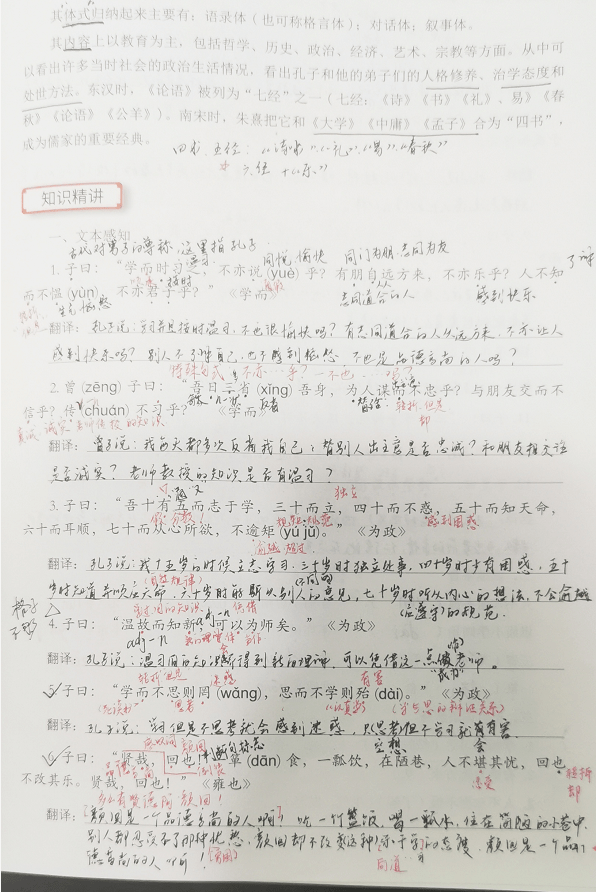 其体式归纳起来主要有：语录体（也可称格言体）；对话体；叙事体。
其内容上以教育为主，包括哲学、历史、政治、经济、艺术、宗教等方面。从中可
以看出许多当时社会的政治生活情况，看出孔子和他的弟子们的人格修养、治学态度和
处世方法。东汉时，《论语》被列为“七经”之一（七经：《诗》《书》《礼》、易》《春
秋》《论语》《公羊》）。南宋时，朱熹把它和《大学》《中庸》《孟子》合为“四书”，
成为儒家的重要经典。
四书、五经：“诗书”“礼”“易”“春秋”
六经 +“乐”
知识精讲
一、文本感知
古代对男子的尊称，这里指孔子
同悦，愉快 同门为朋，志同为友
1. 子曰：“学而时习之，不亦说(yuè)乎？有朋自远方来，不亦乐乎？人不知
了解
而不愠(yùn)，不亦君子乎？” 《学而》
生气 恼怒
志同道合的人 感到快乐
翻译：孔子说：学习并且按时温习，不也很愉快吗？有志同道合的人从远方来，不亦让人
感到快乐吗？别人不了解自己，也不感到恼怒，不也是品德高尚的人吗？
特殊句式：不亦…乎？ 不也…吗？
2. 曾(zēng)子曰：“吾日三省(xǐng)吾身，为人谋而不忠乎？与朋友交而不
信乎？传(chuán)不习乎？” 《学而》
替 转折，但是 却
真诚、诚实 老师传授的知识
翻译：曾子说：我每天都多次反省我自己：替别人出主意是否忠诚？和朋友相交往
是否诚实？老师教授的知识是否有温习？
独立
3. 子曰：“吾十有五而志于学，三十而立，四十而不惑，五十而知天命，
感到困惑
六十而耳顺，七十而从心所欲，不逾矩(yú jǔ)。” 《为政》
翻译：孔子说：我十五岁的时候立志学习，三十岁时独立处事，四十岁时少有困惑，五十
岁时知道并顺应天命，六十岁时能听从别人的意见，七十岁时听从内心的想法，不会逾越
(应遵守)的规范.
4. 子曰：“温故而知新，可以为师矣。” 《为政》
adj→n
翻译：孔子说：温习旧的知识能得到新的理解，可以凭借这一点做老师。
转折 但是 迷惑 有害
5. 子曰：“学而不思则罔(wǎng)，思而不学则殆(dài)。” 《为政》
(学与思的辩证关系)
翻译：孔子说：学习但是不思考就会感到迷惑，只思考但不学习就有害.
6. 子曰：“贤哉，回也！一箪(dān)食，一瓢饮，在陋巷，人不堪其忧，回也
倒装 忍受 转折 却
不改其乐。贤哉，回也！” 《雍也》
多么有贤德阿 颜回！
翻译：颜回是一个品德高尚的人啊！吃一竹篮饭，喝一瓢水，住在简陋的小巷中，
别人都忍受不了那种忧愁，颜回却不改变这种乐于学的态度，颜回是一个品
德高尚的人啊！